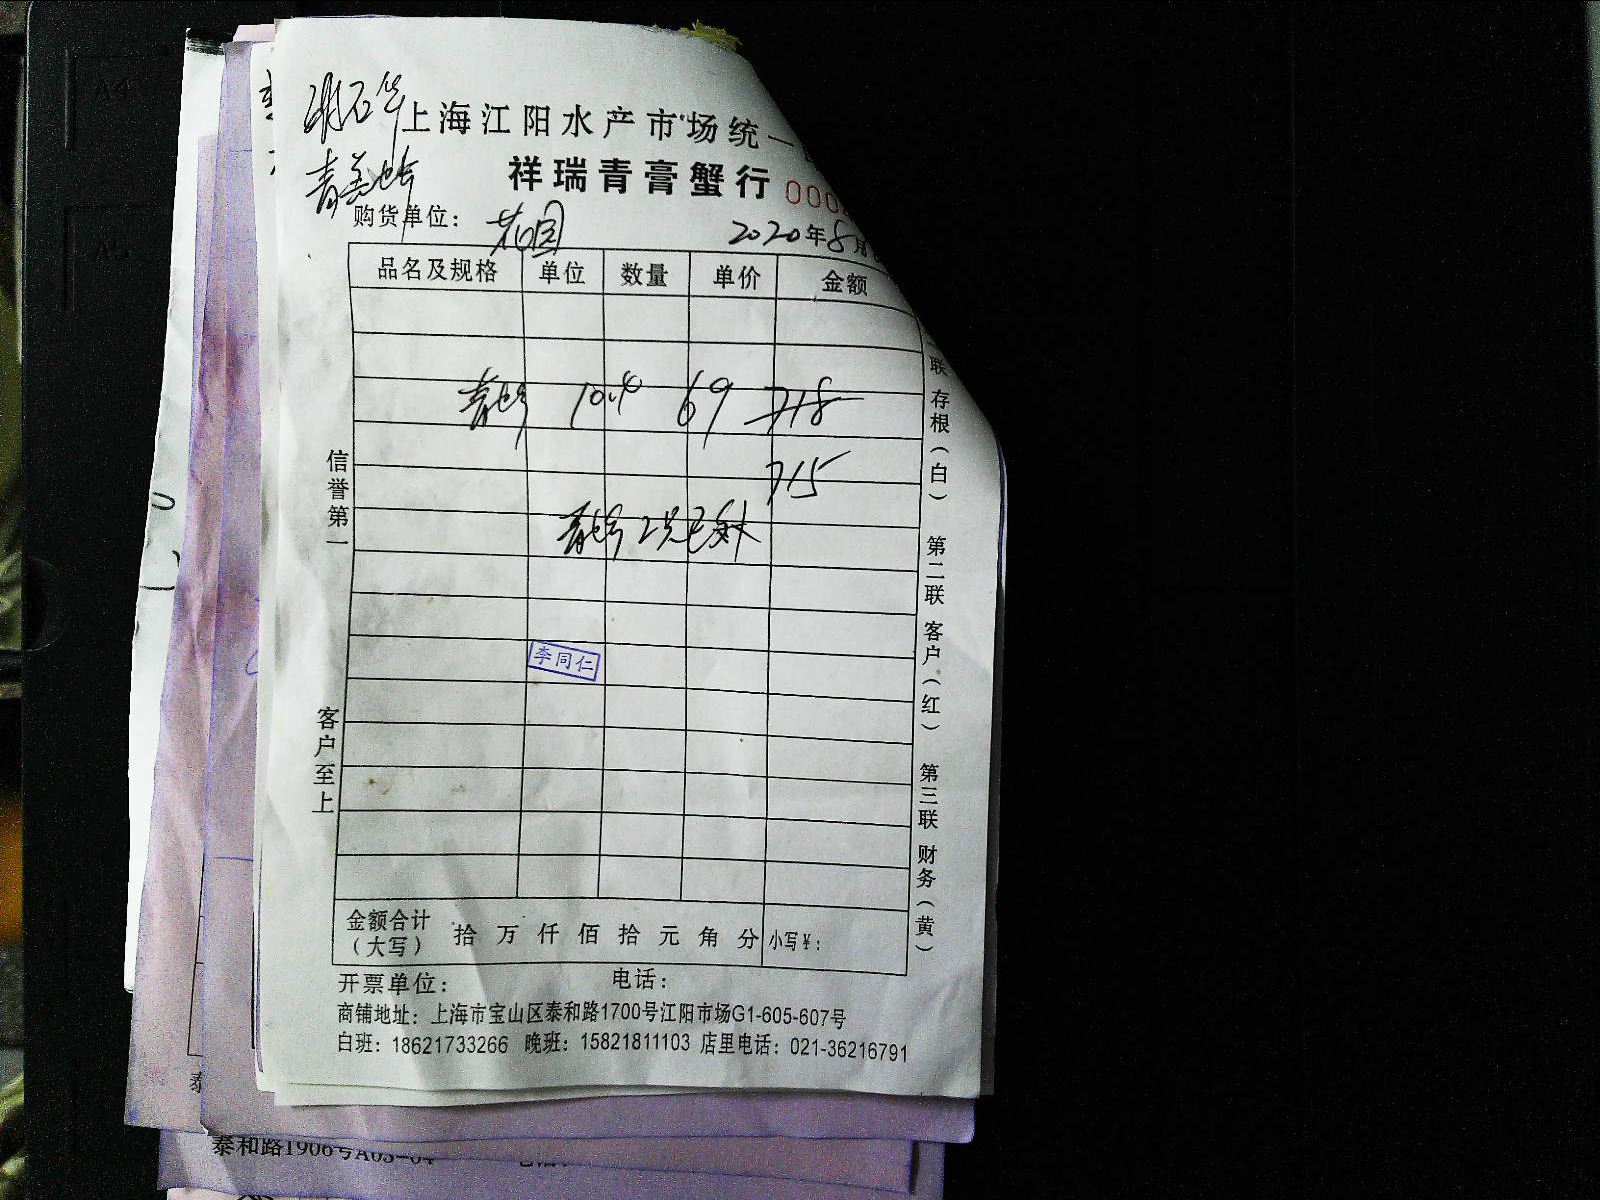 上海江阳水产市场统一
祥瑞青膏蟹行 000
购货单位： 花园 2020年8月
品名及规格 单位 数量 单价 金额
10.4 69 718
715
信誉第一
李同仁
客户至上
联 存根（白） 第二联 客户（红） 第三联 财务（黄）
金额合计（大写） 拾 万 仟 佰 拾 元 角 分 小写¥：
开票单位： 电话：
商铺地址：上海市宝山区泰和路1700号江阳市场G1-605-607号
白班：18621733266 晚班：15821811103 店里电话：021-36216791
泰和路1906号A03-04